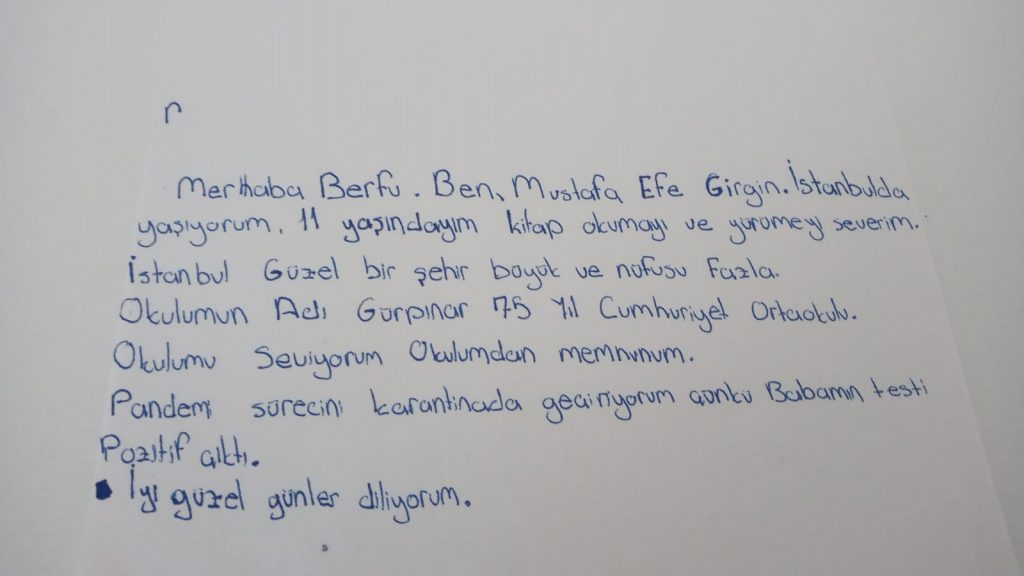 r
Merhaba Berfu. Ben, Mustafa Efe Girgin. İstanbulda
yaşıyorum. 11 yaşındayım kitap okumayı ve yürümeyi severim.
İstanbul Güzel bir şehir büyük ve nüfusu Fazla.
Okulumun Adı Gürpınar 75 Yıl Cumhuriyet Ortaokulu.
Okulumu Seviyorum Okulumdan memnunum.
Pandemi sürecini karantinada geçiriyorum çünkü Babamın testi
Pozitif çıktı.
• İyi güzel günler diliyorum.